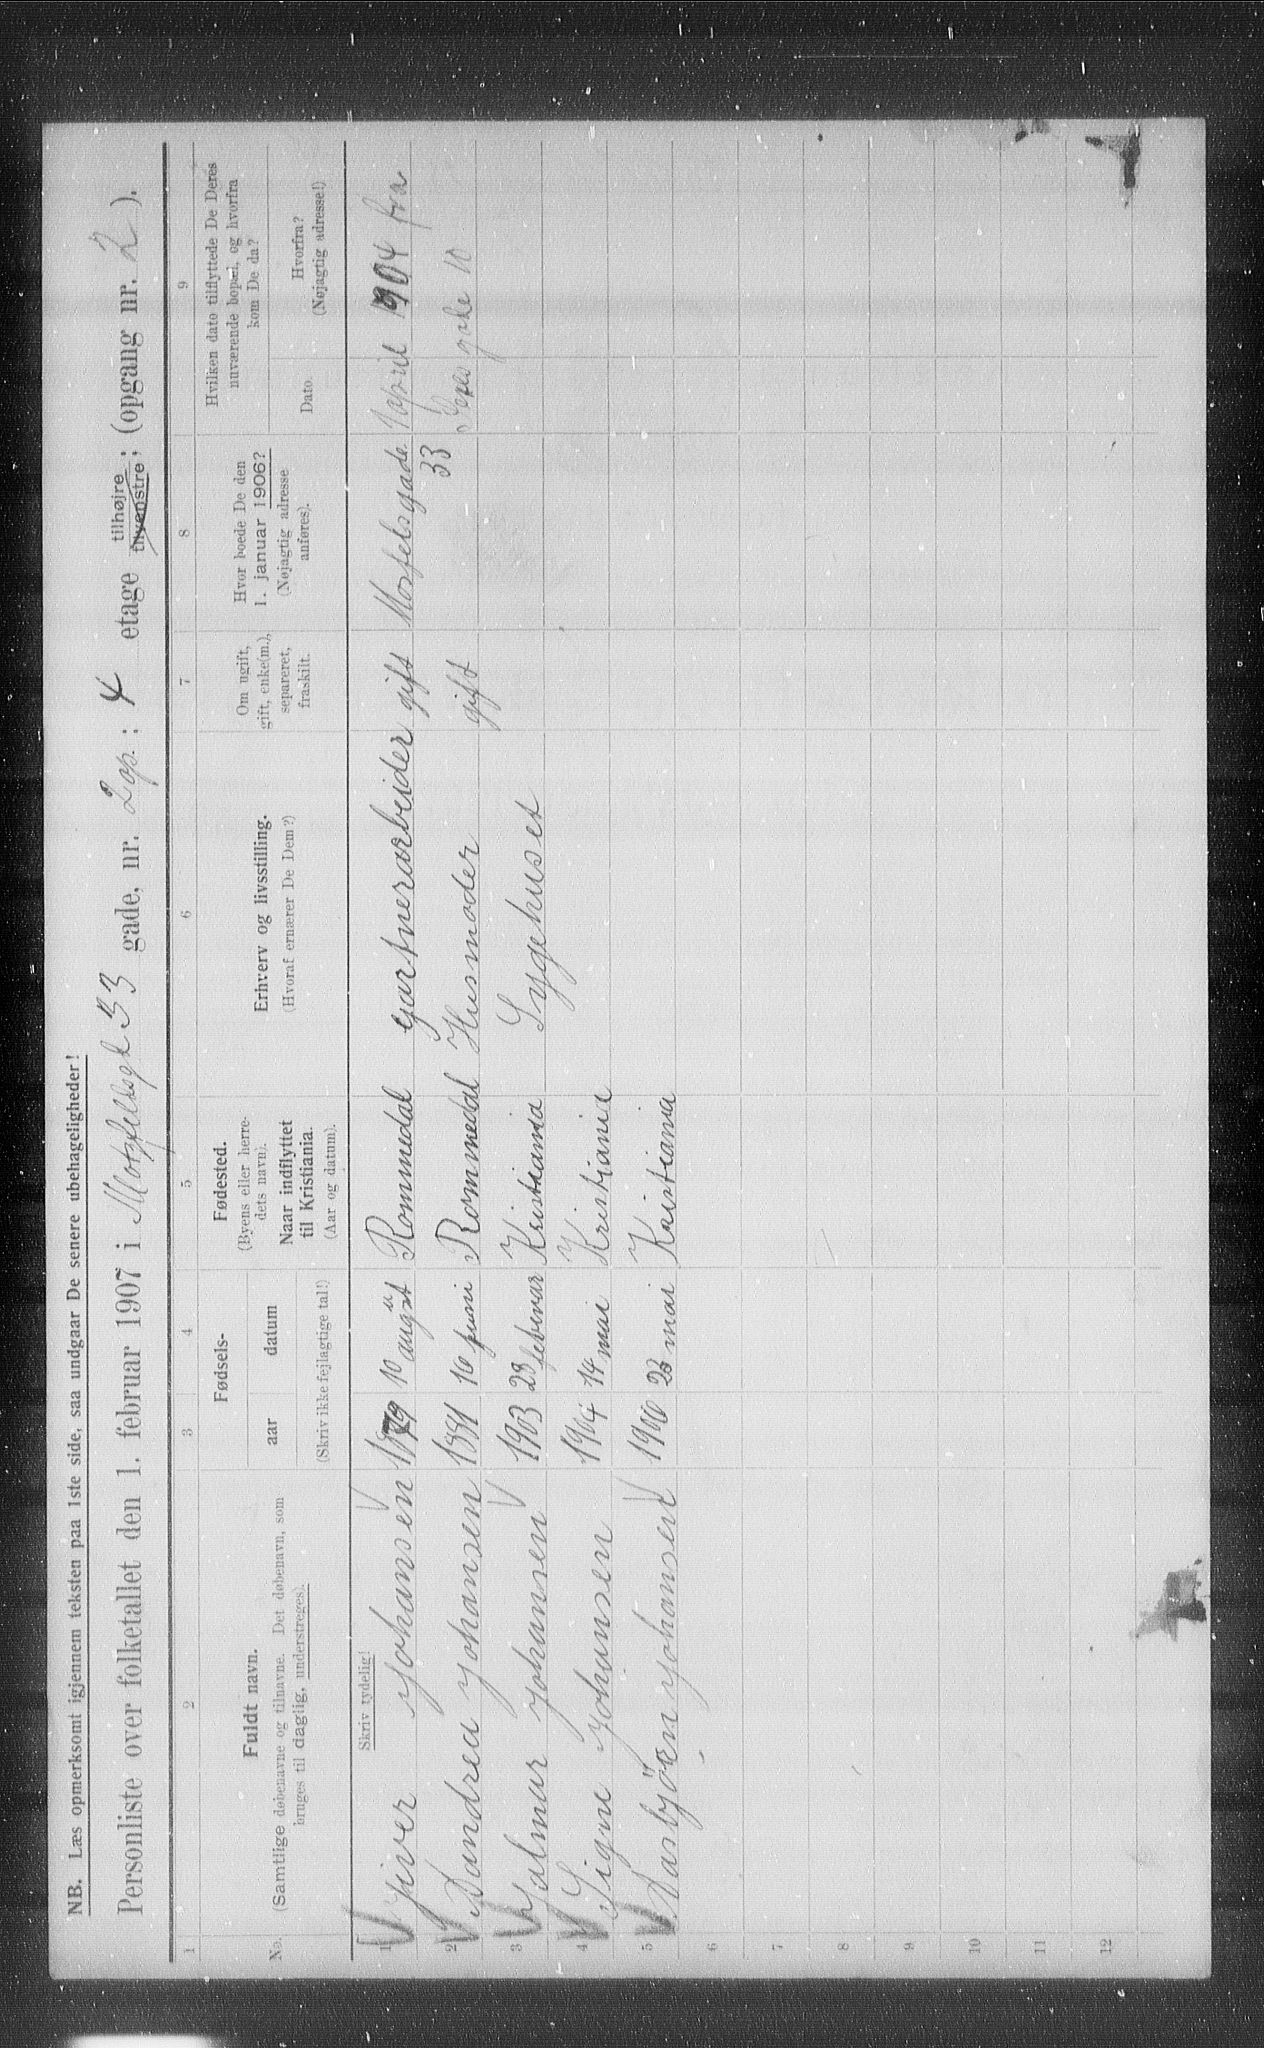 NB. Læs opmerksomt igjennem teksten paa 1ste side, saa undgaar De senere ubehageligheder!
Personliste over folketallet den 1. februar 1907 i Motzfeldtsgt 33 gade, nr. 2 op. : 4 etage tilhøjre ; tilvenstre ; (opgang nr. 2 ).
1 2 3 4 5 6 7 8 9
No. Fuldt navn. (Samtlige døbenavne og tilnavne. Det døbenavn, som bruges til daglig, understreges).
Fødsels- aar datum (Skriv ikke fejlagtige tal!)
Fødested. (Byens eller herredets navn). Naar indflyttet til Kristiania. (Aar og datum).
Erhverv og livsstilling. (Hvoraf ernærer De Dem?)
Om ugift, gift, enke(m.), separeret, fraskilt.
Hvor boede De den 1. januar 1906? (Nøjagtig adresse anføres).
Hvilken dato tilflyttede De Deres nuværende bopæl, og hvorfra kom De da?
Dato. Hvorfra? (Nøjagtig adresse!)
Skriv tydelig!
1 Iver Johansen 1879 10 august Rommedal gartnerarbeider gift Mosfelsgade 33 1 april 1904 fra
2 Andrea Johansen 1881 16 juni Rommedal Husmoder gift gade 10
3 Hjalmar Johansen 1903 28 februar Kristiania Sygehuset
4 Signe Johansen 1904 14 mai Kristiania
5 Aasbjörn Johansen 1906 23 mai Kristiania
6
7
8
9
10
11
12